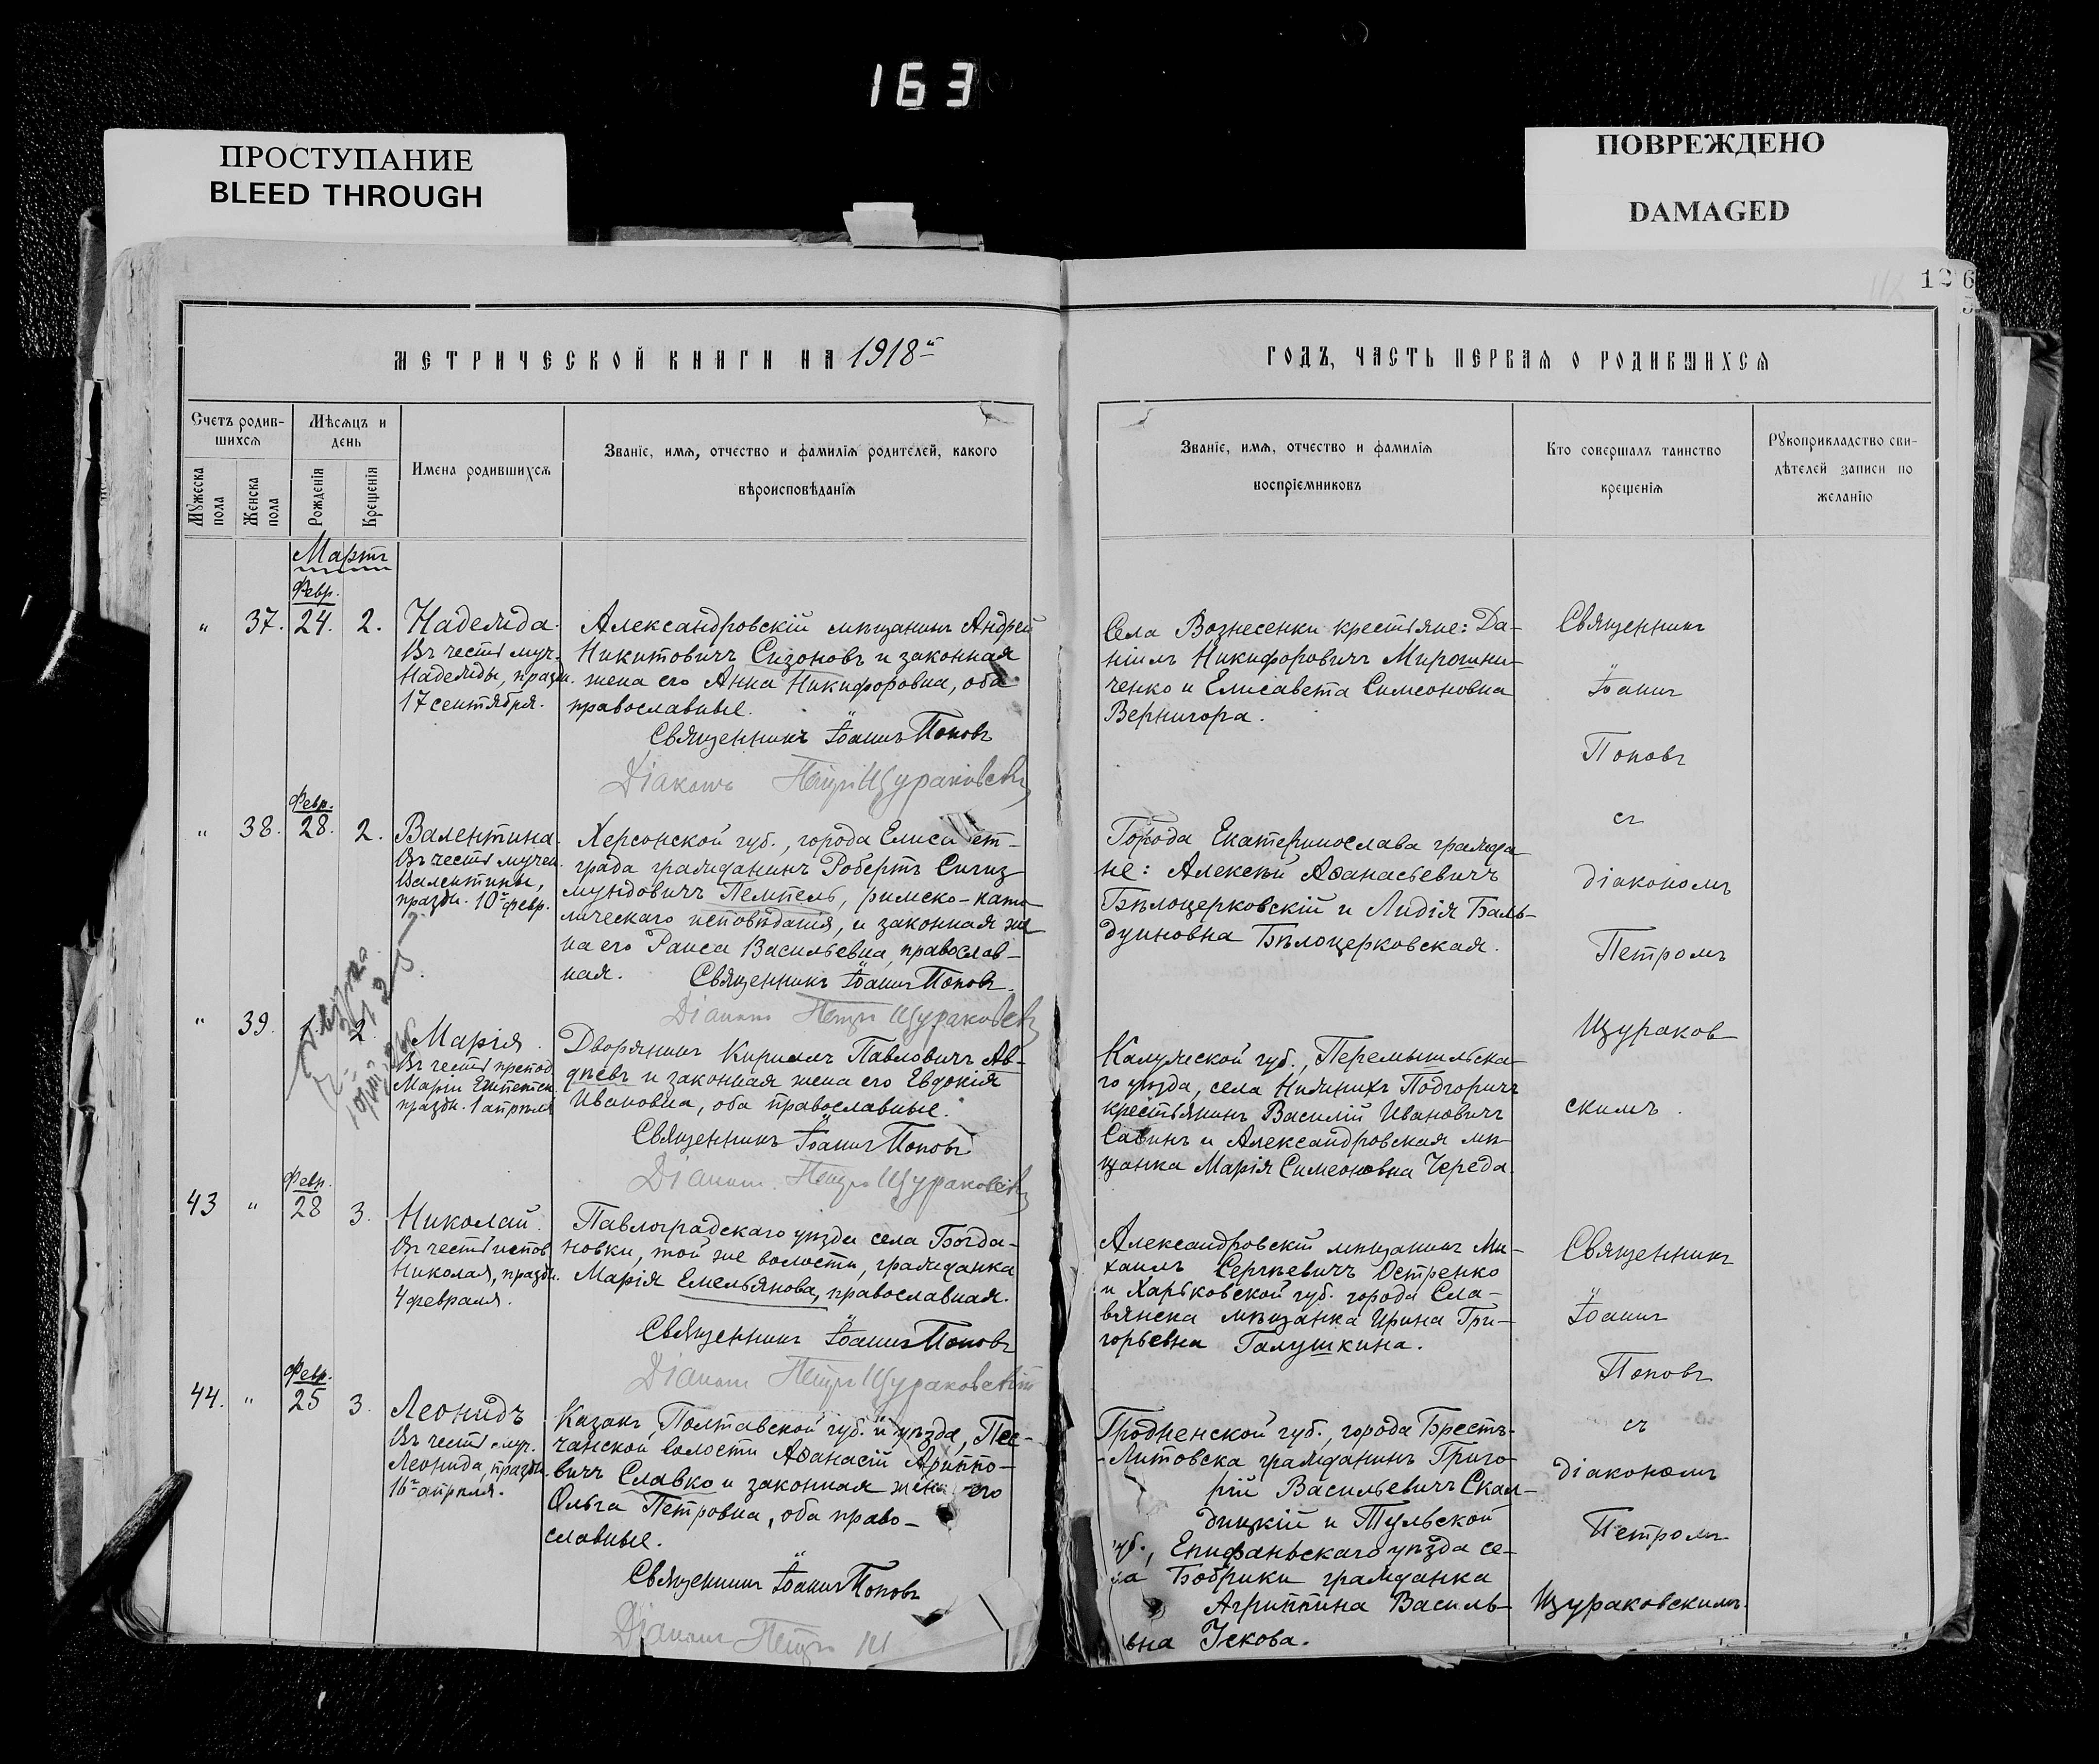 163
ПРОСТУПАНИЕ
BLEED THROUGH
ПОВРЕЖДЕНО
DAMAGED
126
МЕТРИЧЕСКОЙ КНИГИ НА 1918й
Счетъ родив-
шихся
Мѣсяцъ и
день
Мужеска
пола
Женска
пола
Рожденія
Крещенія
Имена родившихся
Званіе, имя, отчество и фамилія родителей, какого
вѣроисповѣданія
Мартъ
Февр.
" 37. 24. 2.
Надежда.
Въ честь муч.
Надежды, праздн.
17 сентября.
Александровскій мѣщанинъ Андрей
Никитовичъ Сизоновъ и законная
жена его Анна Никифоровна, оба
православные.
Священникъ Іоаннъ Поповъ
Діаконъ Петръ Щураковскій
Февр.
" 38. 28. 2.
Валентина.
Въ честь мучен.
Валентины,
праздн. 10г февр.
Херсонской губ., города Елисаветграда
гражданинъ Робертъ Сигиз-
мундовичъ Пемпель, римско-като-
лическаго исповѣданія, и законная же-
на его Раиса Васильевна, православ-
ная. Священникъ Іоаннъ Поповъ.
Діаконъ Петръ Щураковскій
" 39. 1 2
Марія.
Въ честь препод.
Маріи Египетск.
праздн. 1 апрѣля
Дворянинъ Кириллъ Павловичъ Ав-
дѣевъ и законная жена его Евдокія
Ивановна, оба православные.
Священникъ Іоаннъ Поповъ
Діаконъ Петръ Щураковскій
Февр.
43 " 28 3.
Николай.
Въ честь испов.
Николая, праздн.
4 февраля.
Павлоградскаго уѣзда села Богда-
новки, той же волости, гражданка
Марія Емельянова, православная.
Священникъ Іоаннъ Поповъ
Діаконъ Петръ Щураковскій
Февр.
44. " 25 3.
Леонидъ
Въ честь муч.
Леонида, праздн.
16г апрѣля.
Казакъ, Полтавской губ. и уѣзда, Пес-
чанской волости Аѳанасій Агиппо-
вичъ Славко и законная жена его
Ольга Петровна, оба право-
славные.
Священникъ Іоаннъ Поповъ
Діаконъ Петръ Щ
ГОДЪ, ЧАСТЬ ПЕРВАЯ О РОДИВШИХСЯ
Званіе, имя, отчество и фамилія
воспріемниковъ
Кто совершалъ таинство
крещенія
Рукоприкладство сви-
дѣтелей записи по
желанію
Села Вознесенки крестьяне: Да-
ніилъ Никифоровичъ Мирошни-
ченко и Елисавета Симеоновна
Вернигора.
Города Екатеринослава гражда
не: Алексѣй Аѳанасьевичъ
Бѣлоцерковскій и Лидія Баль-
дуиновна Бѣлоцерковская.
Калужской губ., Перемышльска-
го уѣзда, села Нижнихъ Подгоричъ
крестьянинъ Василій Ивановичъ
Савинъ и Александровская мѣ-
щанка Марія Симеоновна Череда.
Александровскій мѣщанинъ Ми-
хаилъ Сергѣевичъ Остренко
и Харьковской губ. города Сла-
вянска мѣщанка Ирина Гри-
горьевна Галушкина.
Гродненской губ., города Брестъ-
-Литовска гражданинъ Григо-
рій Васильевичъ Скан-
дицкій и Тульской
губ., Епифаньскаго уѣзда се-
ла Бобрики гражданка
Агриппина Василь-
вна Ускова.
Священникъ
Іоаннъ
Поповъ
съ
діакономъ
Петромъ
Щураков
скимъ.
Священникъ
Іоаннъ
Поповъ
съ
діакономъ
Петромъ
Щураковскимъ.